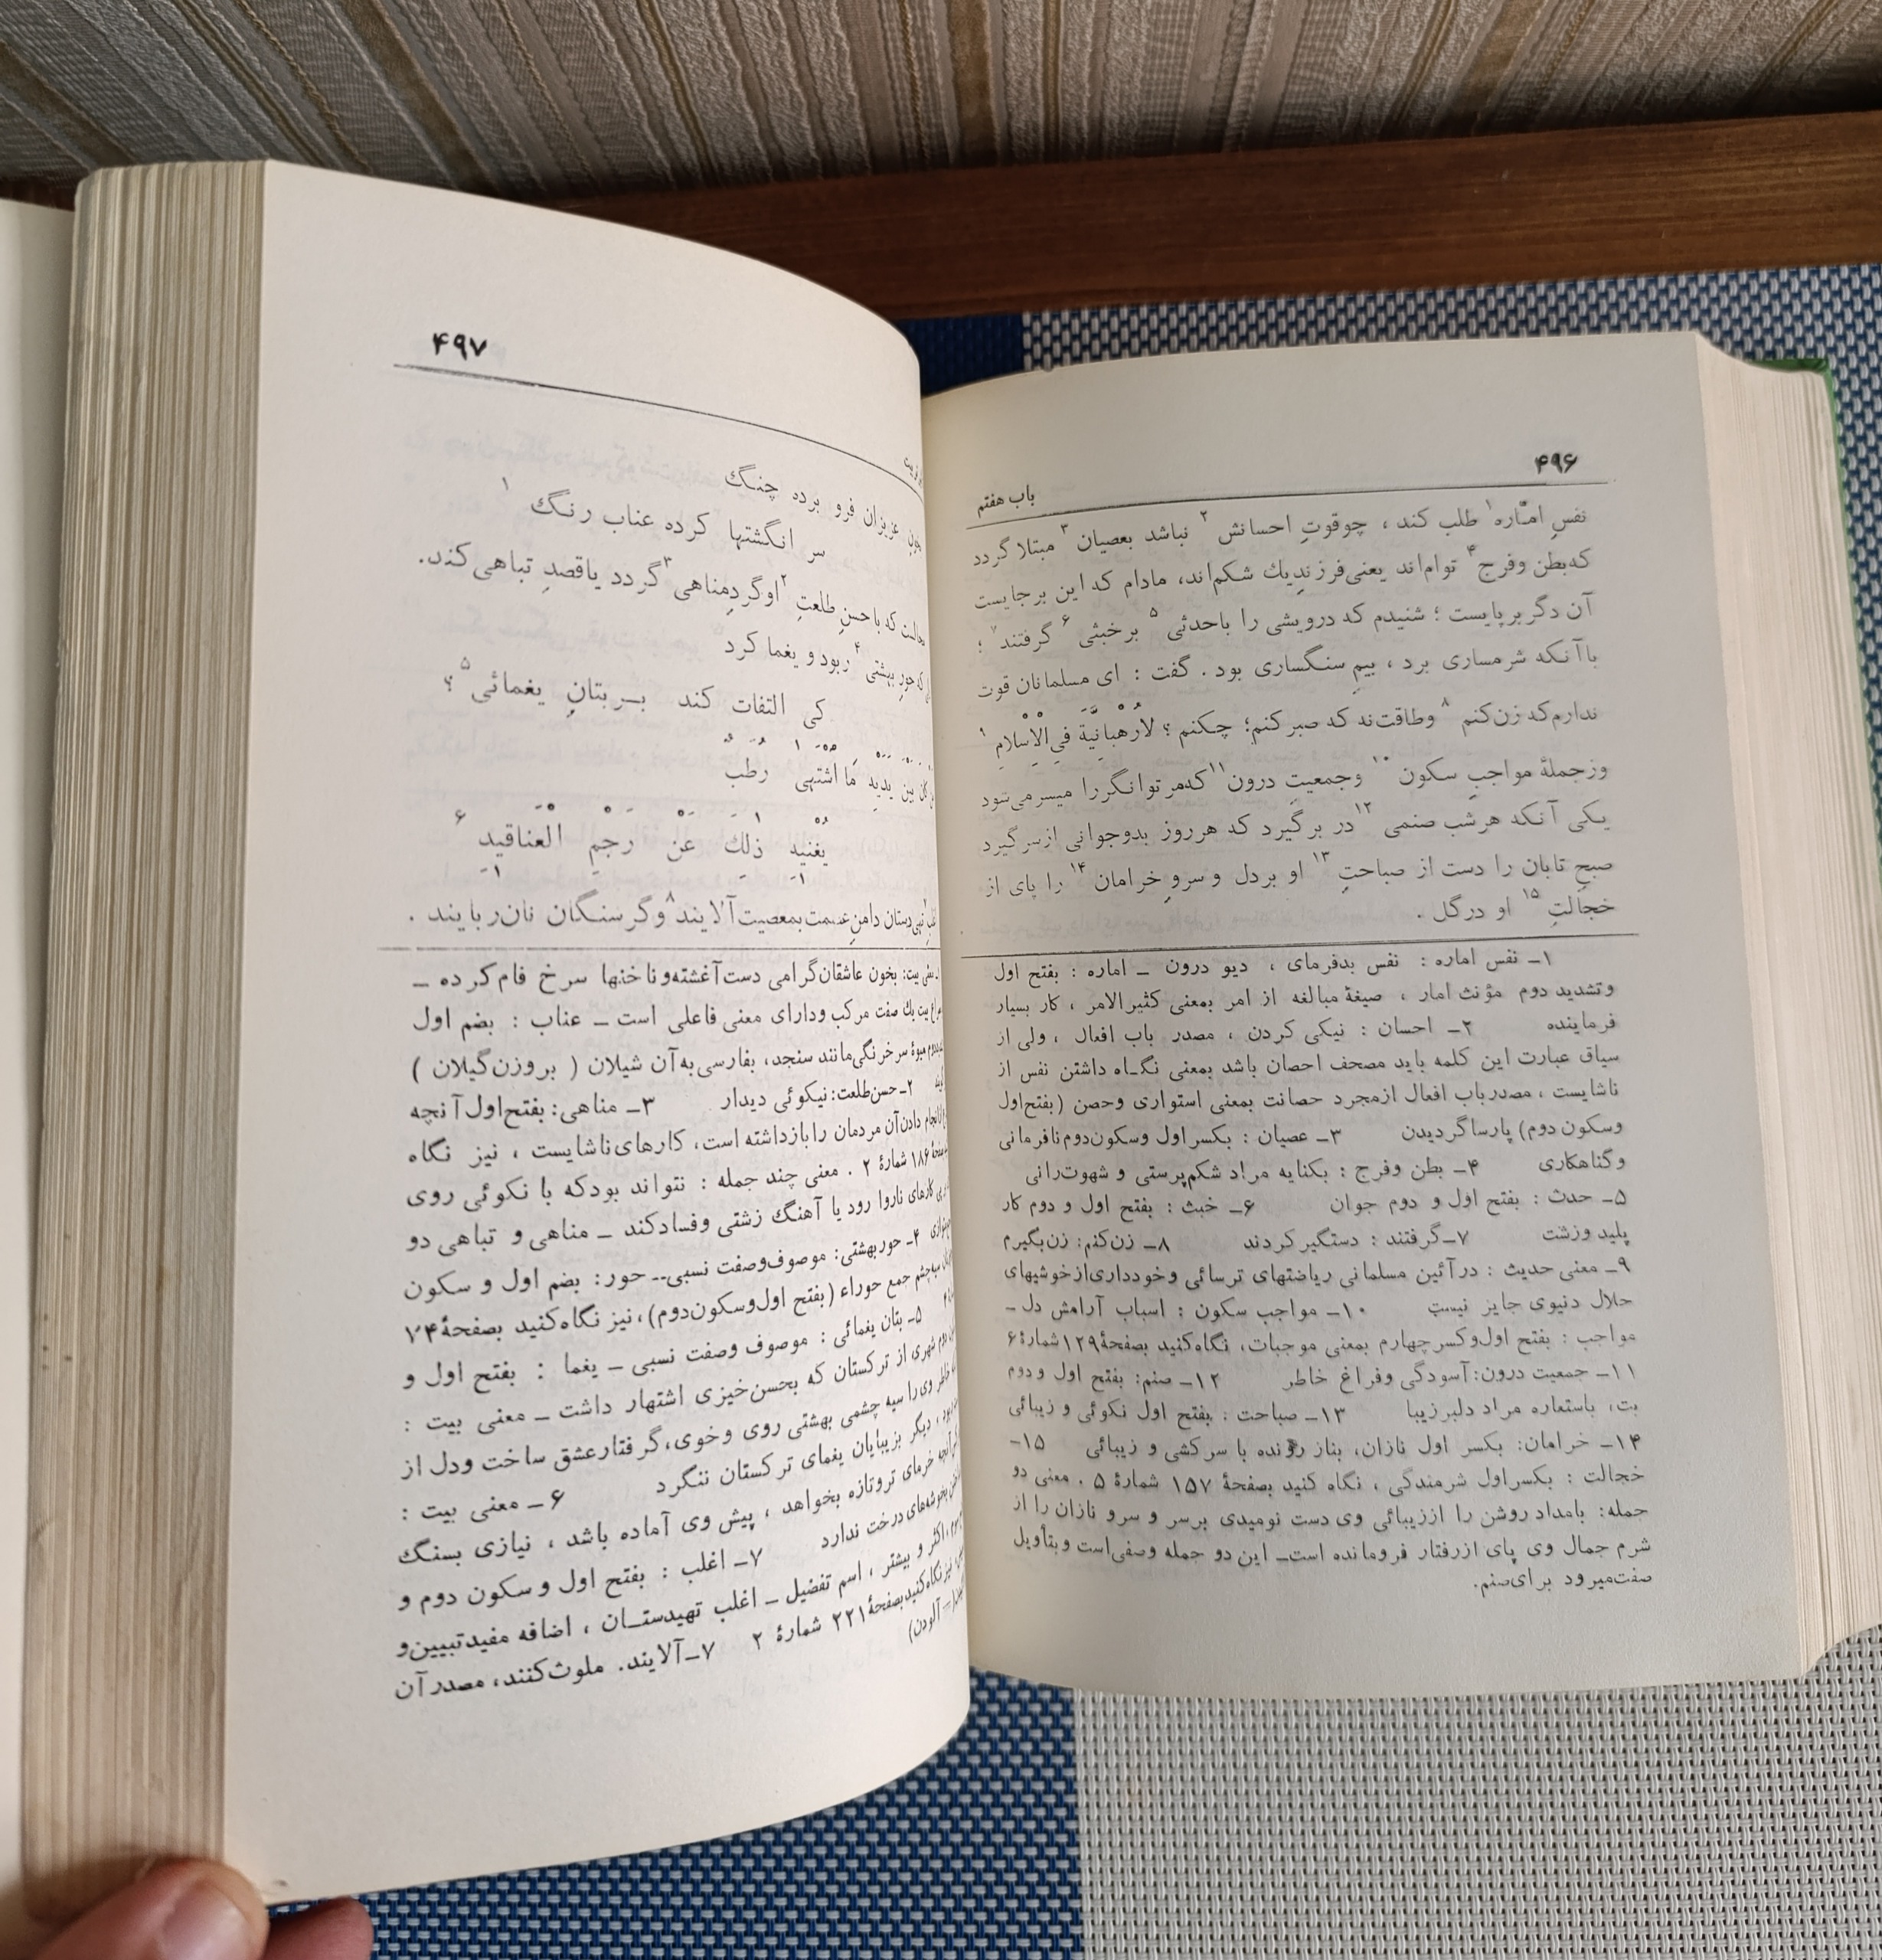 ۴۹۶
باب هفتم
نفسِ امّاره۱ طلب کند ، چوقوتِ احسانش۲ نباشد بعصیان۳ مبتلا گردد
که‌بطن وفرج۴ توام‌اند یعنی‌فرزندِیك شکم‌اند، مادام که این برجایست
آن دگر برپایست ؛ شنیدم که درویشی را باحدثی۵ برخبثی۶ گرفتند۷ ؛
باآنکه شرمساری برد ، بیمِ سنگساری بود . گفت : ای مسلمانان قوت
ندارم‌که زن‌کنم۸ وطاقت‌نه که صبرکنم؛ چکنم ؟ لاٰرَهْبانِیَّةَ فیِ‌الْاِسْلامِ۹
وزجملهٔ مواجبِ سکون۱۰ وجمعیتِ درون۱۱ که‌مر توانگررا میسرمی‌شود
یکی آنکه هرشب صنمی۱۲ در برگیرد که هرروز بدوجوانی ازسرگیرد
صبحِ تابان را دست از صباحتِ۱۳ او بردل وسروِخرامان۱۴ را پای از
خجالتِ۱۵ او درگل .
۱ــ نفس اماره : نفس بدفرمای ، دیو درون ــ اماره : بفتح اول
وتشدید دوم مؤنث امار ، صیغهٔ مبالغه از امر بمعنی کثیرالامر ، کار بسیار
فرماینده ۲ــ احسان : نیکی کردن ، مصدر باب افعال ، ولی از
سیاق عبارت این کلمه باید مصحف احصان باشد بمعنی نگـاه داشتن نفس از
ناشایست ، مصدرباب افعال ازمجرد حصانت بمعنی استواری وحصن (بفتح‌اول
وسکون دوم) پارساگردیدن ۳ــ عصیان : بکسراول وسکون‌دوم‌نافرمانی
وگناهکاری ۴ــ بطن وفرج : بکنایه مراد شکم‌پرستی و شهوت‌رانی
۵ــ حدث : بفتح اول و دوم جوان ۶ــ خبث : بفتح اول و دوم کار
پلید وزشت ۷ــ گرفتند : دستگیرکردند ۸ــ زن‌کنم: زن‌بگیرم
۹ــ معنی حدیث : درآئین مسلمانی ریاضتهای ترسائی وخودداری‌ازخوشیهای
حلال دنیوی جایز نیست ۱۰ــ مواجب سکون : اسباب آرامش دل ــ
مواجب : بفتح اول‌وکسرچهارم بمعنی موجبات، نگاه‌کنید بصفحهٔ۱۲۹شمارهٔ۶
۱۱ــ جمعیت درون: آسودگی وفراغ خاطر ۱۲ــ صنم: بفتح اول ودوم
بت، باستعاره مراد دلبرزیبا ۱۳ــ صباحت : بفتح اول نکوئی و زیبائی
۱۴ــ خرامان: بکسر اول نازان، بناز رونده با سرکشی و زیبائی ۱۵ــ
خجالت : بکسراول شرمندگی ، نگاه کنید بصفحهٔ ۱۵۷ شمارهٔ ۵ . معنی دو
جمله: بامداد روشن را اززیبائی وی دست نومیدی برسر و سرو نازان را از
شرم جمال وی پای ازرفتار فرومانده است‌ــ این دو جمله وصفی‌است وبتأویل
صفت‌میرود برای‌صنم.
۴۹۷
بخونِ عزیزان فرو برده چنـگ
سرِ انگشتها کرده عناب رنـگ۱
محالست که باحسنِ طلعتِ۲ اوگردِمناهی۳ گردد یاقصدِ تباهی‌کند.
که حورِ بهشتی۴ ربود و یغما کرد
کی التفات کند بــر بتانِ یغمائی۵ ؟
کان بین یدیهِ مَا اشْتَهیٰ رُطَبٌ
یُغْنیٖهِ ذٰلِكَ عَنْ رَجْمِ الْعَناقیٖدِ۶
تهی‌دستان دامنِ‌عصمت‌بمعصیت‌آلایند۸ وگرسنگان نان‌ربایند .
معنی بیت: بخون عاشقان‌گرامی دست‌آغشته‌وناخنها سرخ فام‌کرده ــ
بیت یك صفت مرکب ودارای معنی فاعلی است ــ عناب : بضم اول
میوهٔ سرخرنگی‌مانند سنجد، بفارسی‌به‌آن شیلان ( بروزن‌گیلان )
۲ــ حسن‌طلعت: نیکوئی دیدار ۳ــ مناهی: بفتح‌اول‌آنچه
انجام دادن‌آن مردمان رابازداشته است، کارهای‌ناشایست ، نیز نگاه
۱۸۶ شمارهٔ ۲ . معنی چند جمله : نتواند بودکه با نکوئی روی
کارهای ناروا رود یا آهنگ زشتی وفسادکند ــ مناهی و تباهی دو
۴ــ حوربهشتی: موصوف‌وصفت نسبی‌ــ حور: بضم اول و سکون
سیه‌چشم جمع حوراء (بفتح اول‌وسکون‌دوم)، نیز نگاه‌کنید بصفحهٔ۷۴
۵ــ بتان یغمائی : موصوف وصفت نسبی ــ یغما : بفتح اول و
دوم شهری از ترکستان که بحسن‌خیزی اشتهار داشت ــ معنی بیت :
خاطر وی‌را سیه چشمی بهشتی روی وخوی، گرفتارعشق ساخت ودل از
دیگر بزیبایان یغمای ترکستان ننگرد ۶ــ معنی بیت :
آنچه خرمای تروتازه بخواهد ، پیش وی آماده باشد ، نیازی بسنگ
بخوشه‌های درخت ندارد ۷ــ اغلب : بفتح اول وسکون دوم و
اکثر و بیشتر ، اسم تفضیل ــ اغلب تهیدستــان ، اضافه مفیدتبیین‌و
نگاه‌کنیدبصفحهٔ۲۲۱ شمارهٔ ۲ ۷ــ آلایند. ملوث‌کنند، مصدرآن
آلودن)